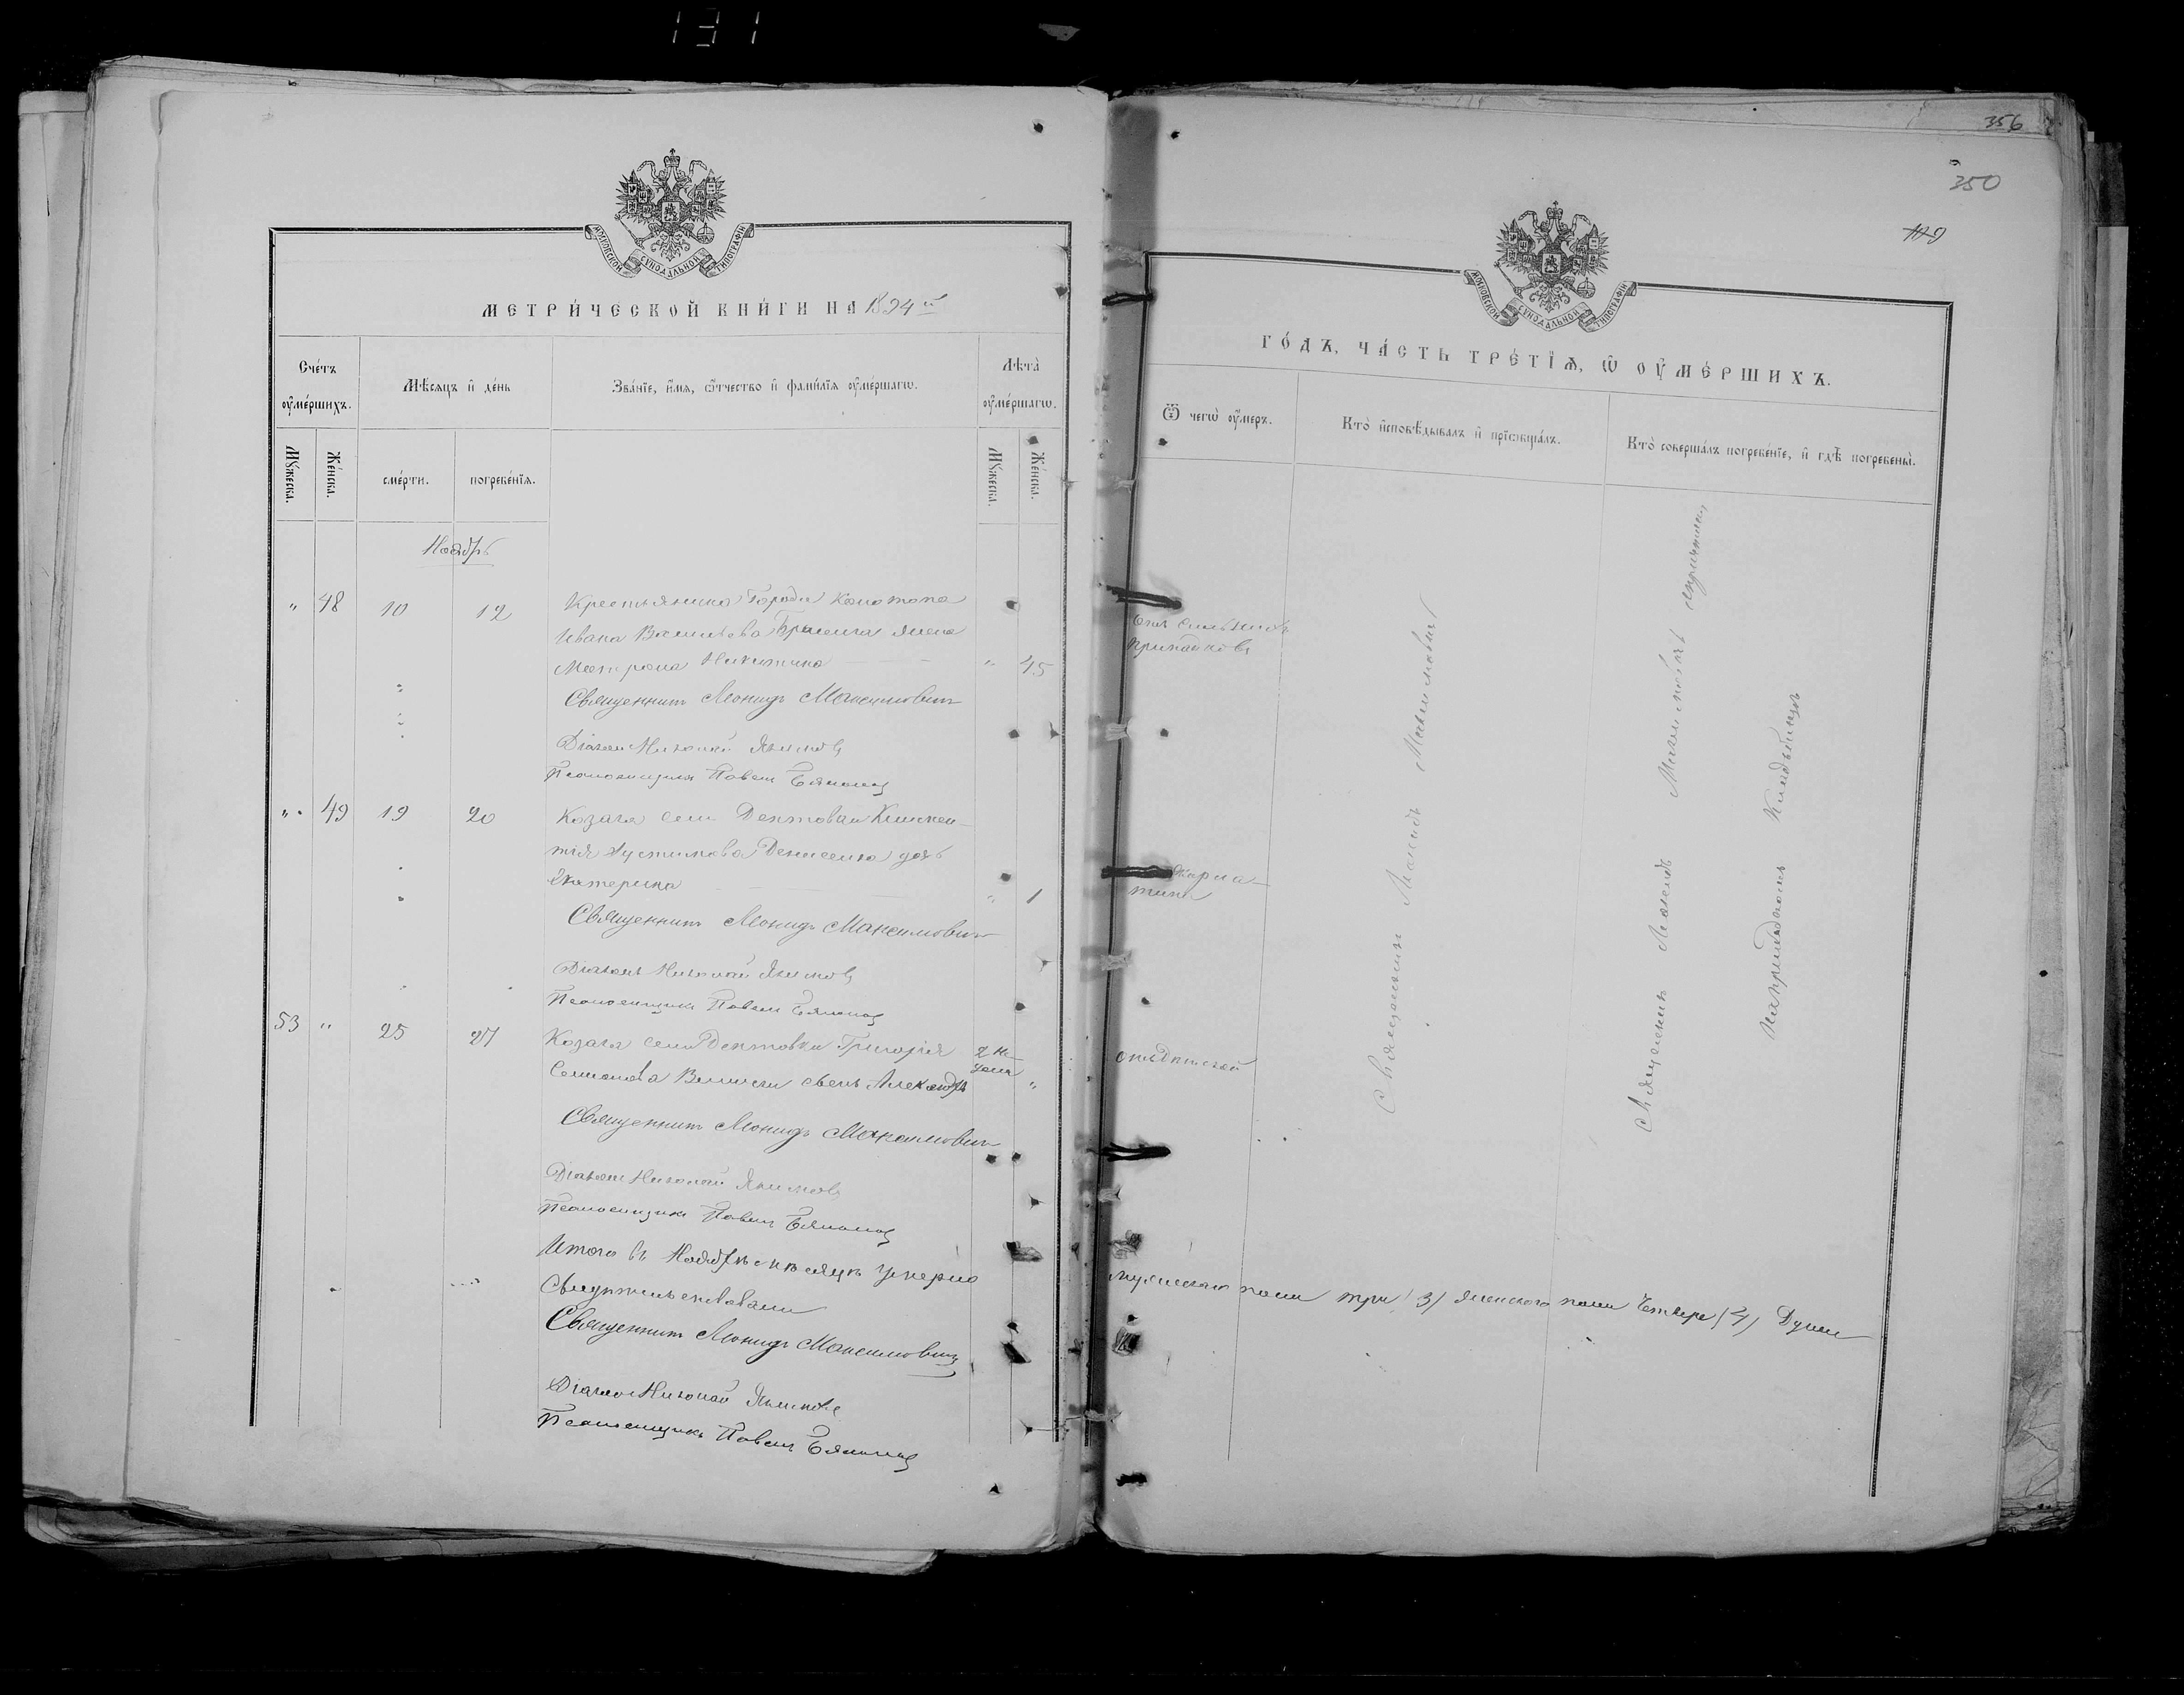 131
356
350
119
МОСКОВСКОЙ СѴНОДАЛЬНОЙ ТИПОГРАФІИ
МЕТРИ́ЧЕСКОЙ КНИ́ГИ НА 1894 й
Сче́тъ ᲂу҆ме́ршихъ.
Мѣ́сяцъ и҆ де́нь
Зва́нїе, и҆́мѧ, ѻ҆́тчество и҆ фами́лїѧ ᲂу҆ме́ршагѡ.
Лѣ́та ᲂу҆ме́ршагѡ.
Мꙋ́жеска.
Же́нска.
сме́рти.
погребе́нїѧ.
Мꙋ́жеска.
Же́нска.
Ноябрь
" 48 10 12 Крестьянина Города Конотопа
Ивана Васильева жена
Матрона Никитина " 45
Священникъ Леонидъ Максимовичъ
Діаконъ Николай Якимовъ
Псаломщикъ Павелъ
" 49 19 20 Козака села Дептовки Климен-
тія Устимова Денисенка дочь
Екатерина " 1
Священникъ Леонидъ Максимовичъ
Діаконъ Николай Якимовъ
Псаломщикъ Павелъ
53 " 25 27 Козака села Дептовки Григорія 2 не-
Семенова сынъ Александръ дели "
Священникъ Леонидъ Максимовичъ
Діаконъ Николай Якимовъ
Псаломщикъ Павелъ
Итого въ Ноябрѣ мѣсяцѣ умерло
Свидѣтельствовали
Священникъ Леонидъ Максимовичъ
Діаконъ Николай Якимовъ
Псаломщикъ Павелъ
МОСКОВСКОЙ СѴНОДАЛЬНОЙ ТИПОГРАФІИ
ГО́ДЪ, ЧА́СТЬ ТРЕ́ТЇѦ, Ѡ҆ ᲂУ҆МЕ́РШИХЪ.
Ѿ чегѡ̀ ᲂу҆́меръ.
Кто̀ и҆сповѣ́дывалъ и҆ прїѡбща́лъ.
Кто̀ соверша́лъ погребе́нїе, и҆ гдѣ̀ погребены̀.
припадковъ
Священникъ Леонидъ Максимовичъ
Священникъ Леонидъ Максимовичъ съ причтомъ
На приходскомъ кладбищѣ
мужескаго пола три (3) женскаго пола Четыре (4) Души